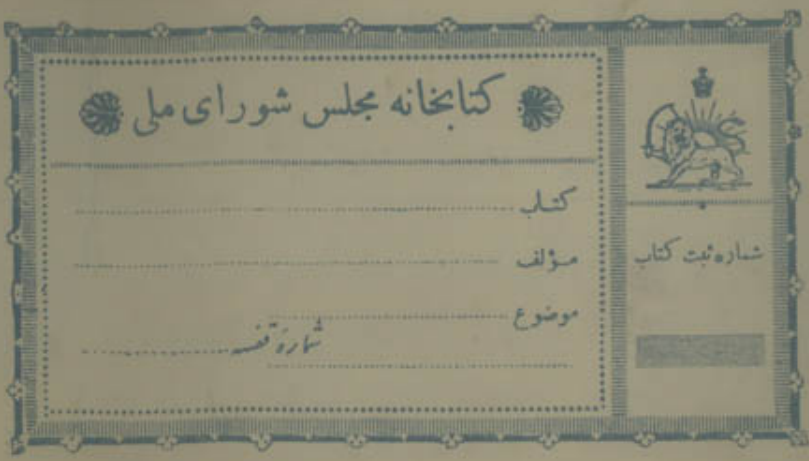 کتابخانه مجلس شورای ملی
کتاب
مؤلف
موضوع
شمارهٔ قفسه
شماره ثبت کتاب